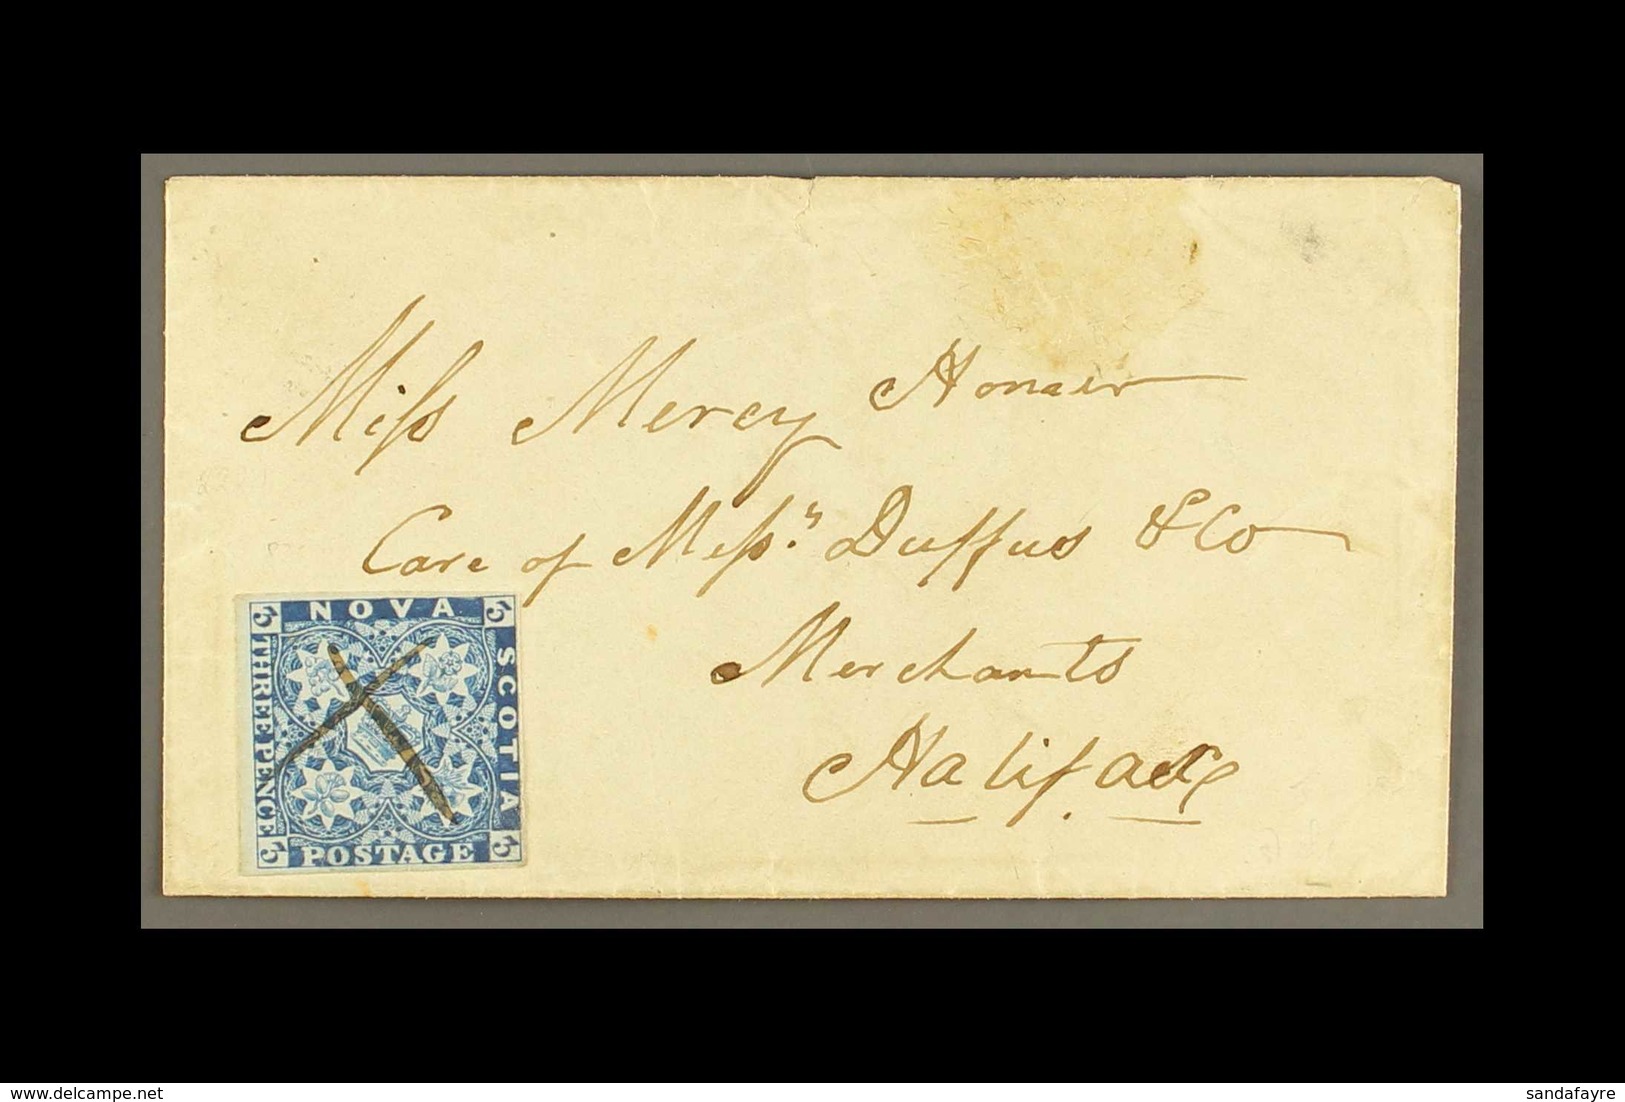 Miss Mercy
Care of Mess.rs Duffus & Co
Merchants
Halifax
NOVA
SCOTIA
THREE PENCE
POSTAGE
3 3
3 3
delcampe.net
sandafayre